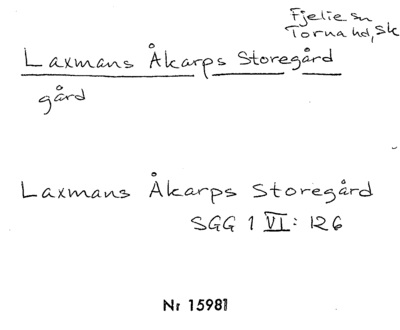 Fjelie sn
Torna hd, Sk
Laxmans Åkarps Storegård
gård
Laxmans Åkarps Storegård
SGG 1 VI: 126
Nr 15981